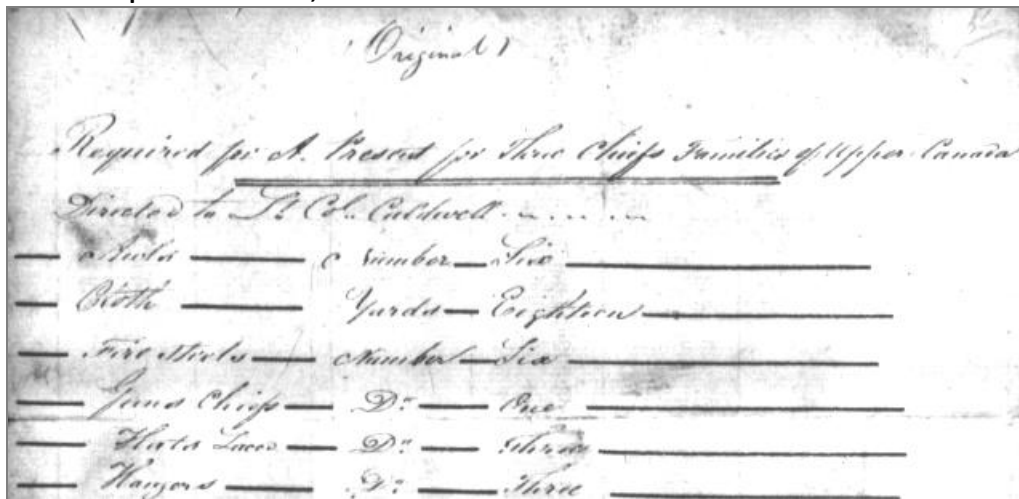 (Original)
Required for A. Present for Three Chiefs Families of Upper Canada
Directed to Lt. Col. Caldwell
Number Six
Cloth Yards Eighteen
Fire Steels Number Six
Guns Chiefs Do. One
Hats Laced Do. Three
Hangers Do. Three